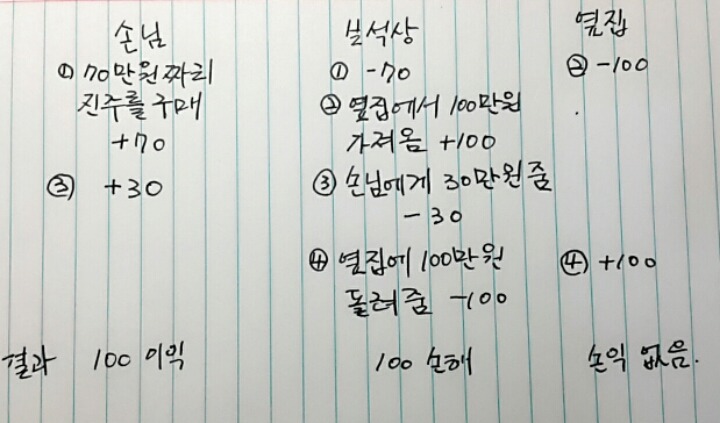 손님 보석상 옆집
① 70만원짜리 ① -70 ② -100
진주를 구매 ② 옆집에서 100만원
+70 가져옴 +100
③ +30 ③ 손님에게 30만원 줌
-30
④ 옆집에 100만원 ④ +100
돌려줌 -100
결과 100 이익 100 손해 손익 없음.